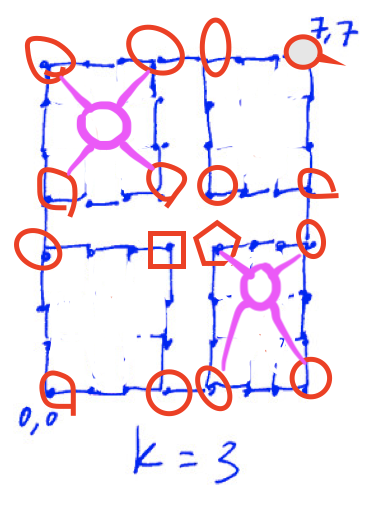 7,7
7
0,0
k = 3